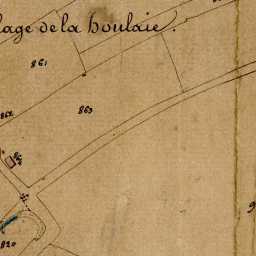 lage de la houlaie.
861
863
862
864
820
9